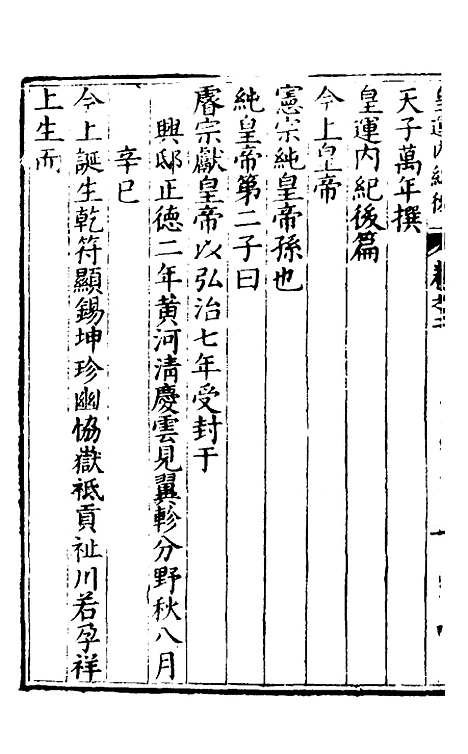 皇運内紀後
天子萬年撰
皇運内紀後篇
今上皇帝
憲宗純皇帝孫也
純皇帝第二子曰
睿宗獻皇帝以弘治七年受封于
興邸正德二年黄河清慶雲見翼軫分野秋八月
辛巳
今上誕生乾符顯錫坤珍幽恊嶽祗貢祉川若孕祥
上生而